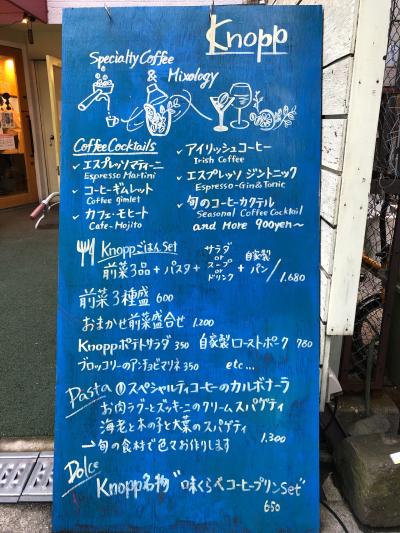 Knopp
Specialty Coffee
& Mixology
Coffee Cocktails
✓ エスプレッソマティーニ
Espresso Martini
✓ コーヒーギムレット
Coffee gimlet
✓ カフェ・モヒート
Cafe-Mojito
✓ アイリッシュコーヒー
Irish Coffee
✓ エスプレッソ ジントニック
Espresso-Gin&Tonic
✓ 旬のコーヒーカクテル
Seasonal Coffee Cocktail
and More 900yen~
Knoppごはんset
前菜3品+パスタ+ サラダ or スープ or ドリンク + 自家製パン/1.680
前菜3種盛 600
おまかせ前菜盛合せ 1.200
Knoppポテトサラダ 350 自家製ローストポーク 780
ブロッコリーのアンチョビマリネ 350 etc...
Pasta ①スペシャルティコーヒーのカルボナーラ
お肉ラグーとズッキーニのクリームスパゲティ
海老と木の子と大葉のスパゲティ
→旬の食材で色々お作りします 1.300
Dolce
Knopp名物"味くらべコーヒープリンset"
650